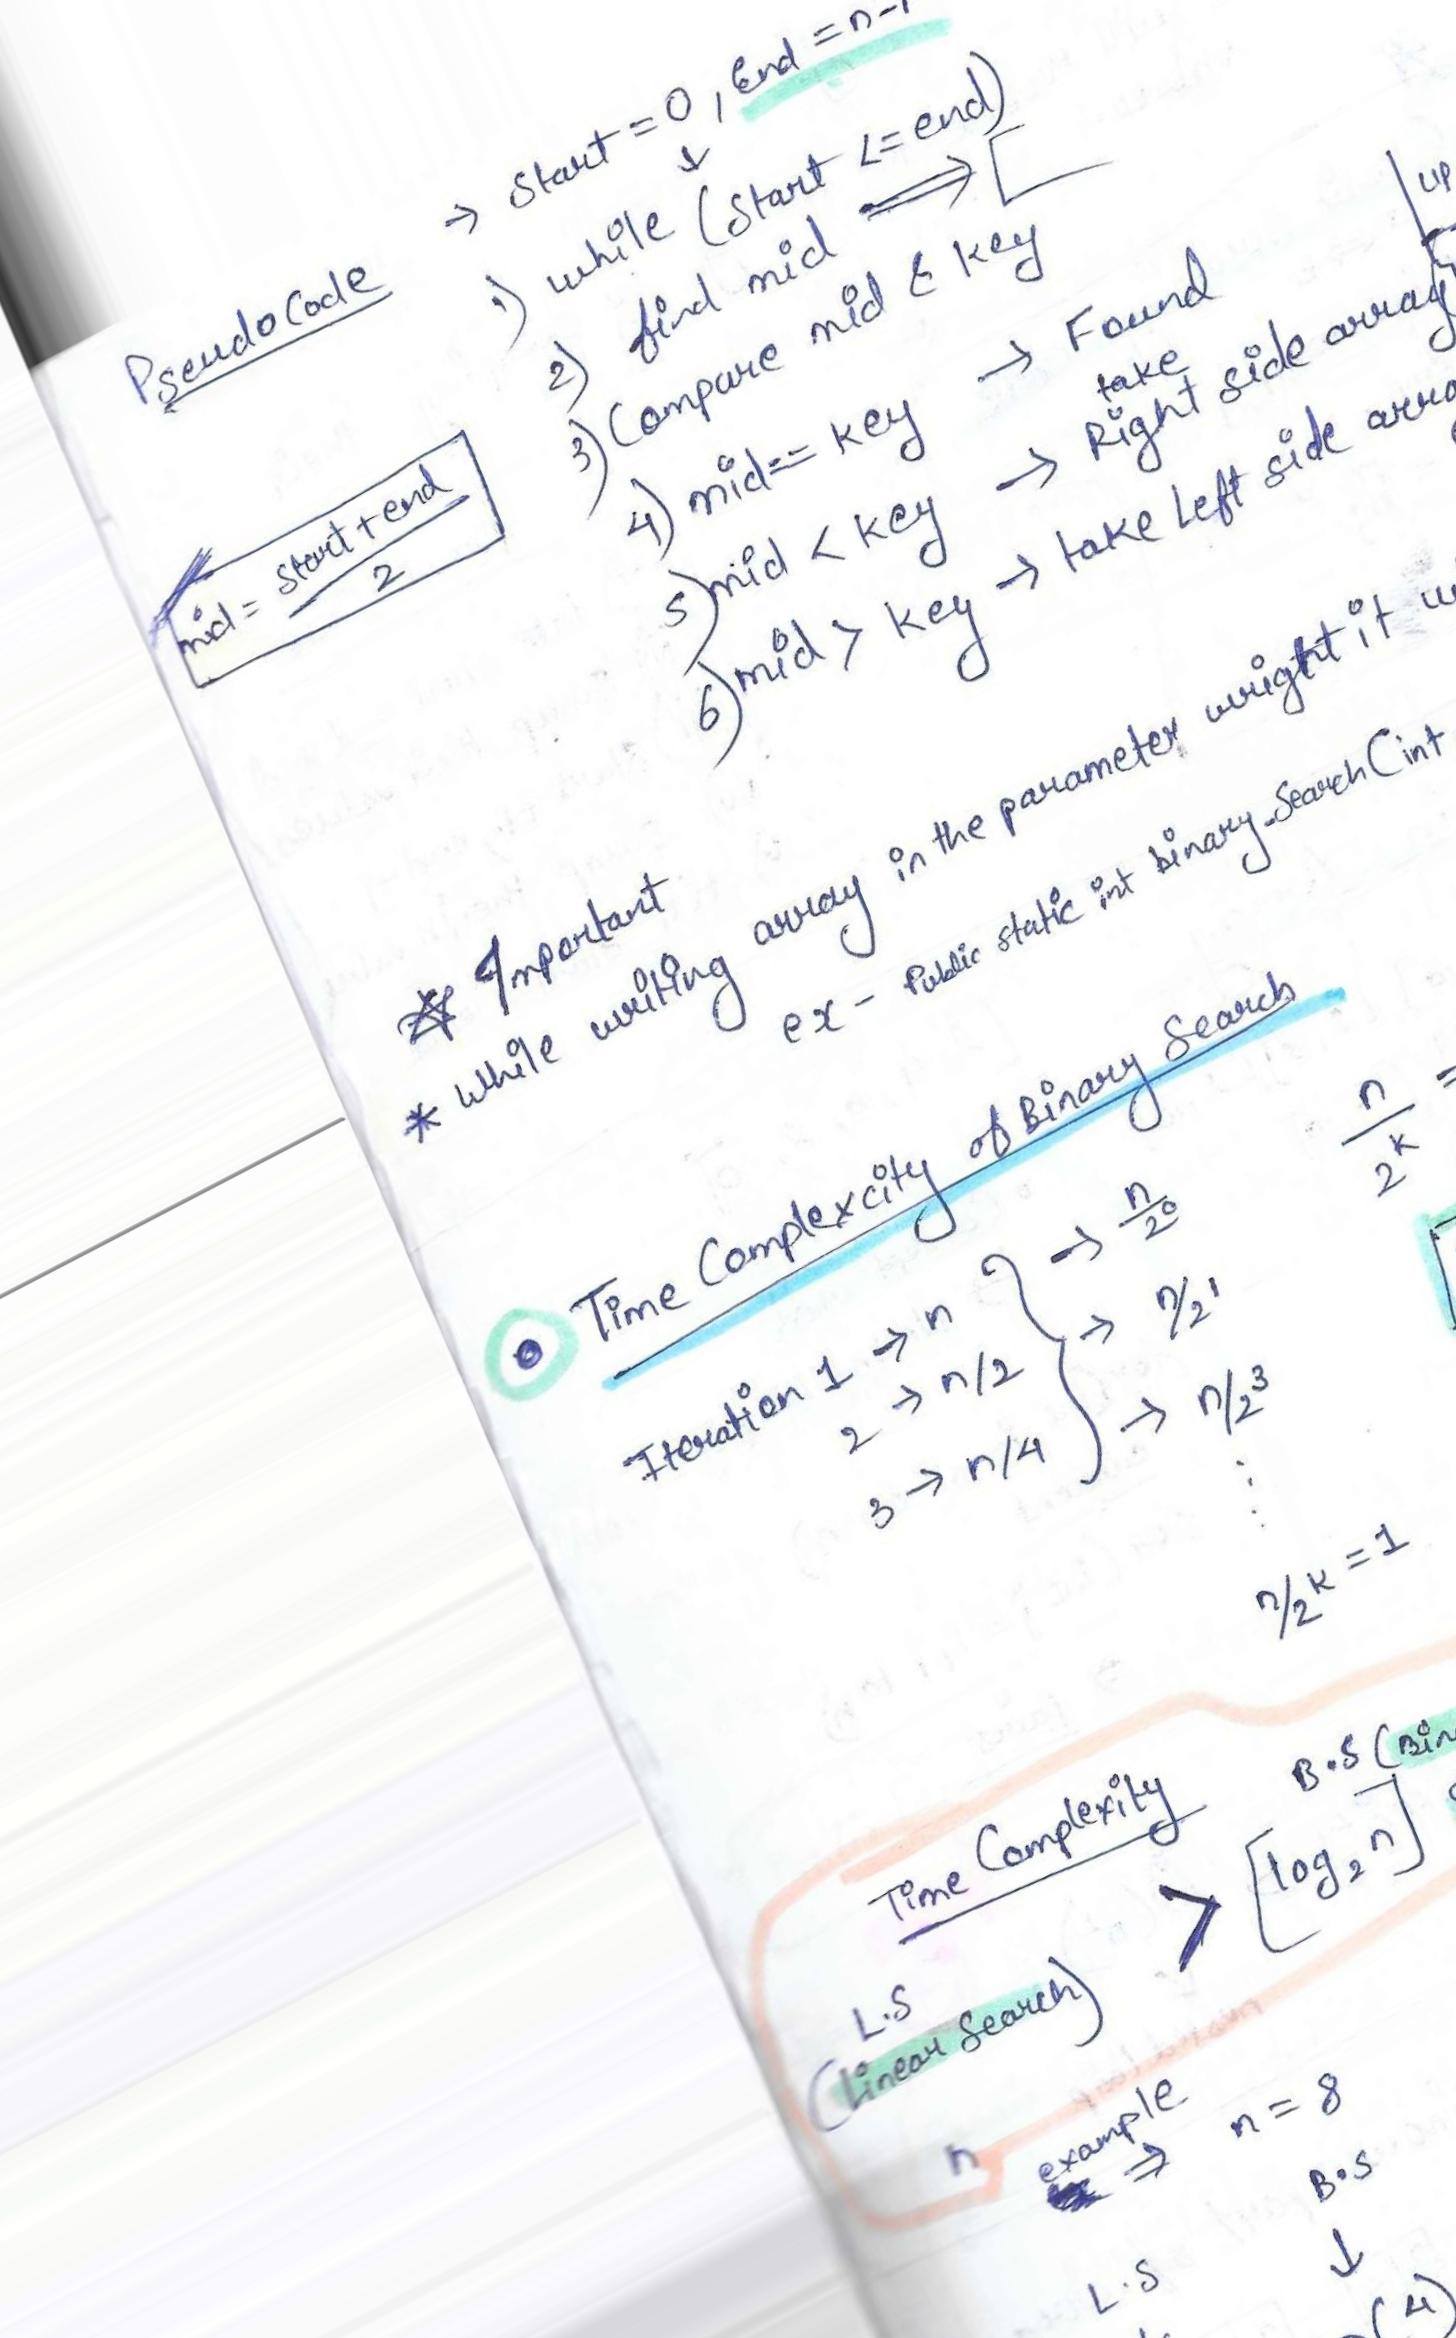 Pseudo Code
→ Start = 0 , End = n-1
↓
1) while (start <= end)
2) find mid ⇒ [
3) Compare mid & key
4) mid == key → Found
5) mid < key → take Right side array
6) mid > key → take Left side
mid = start + end / 2
Important
* while writing array in the parameter wright it
ex - Public static int binary_Search(int
Time Complexcity of Binary Search
Iteration 1 → n → n/2⁰
2 → n/2 → n/2¹
3 → n/4 → n/2³
n/2ᵏ = 1
n/2ᵏ =
Time Complexity
B.S (Bin
L.S
(Linear Search) > [log₂ n]
n
example ⇒ n = 8
L.S
B.S
↓
(4)